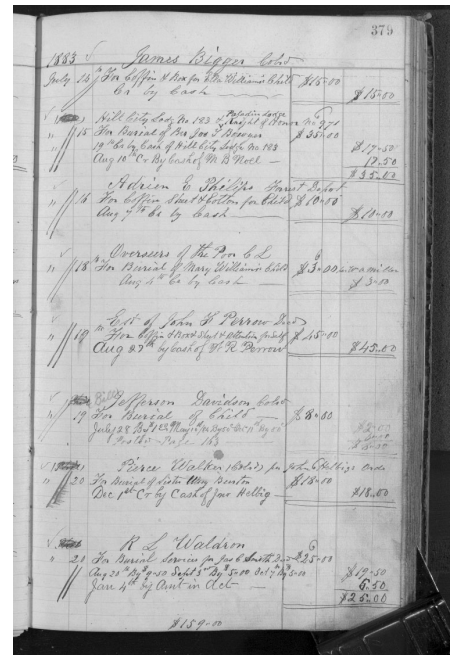 379
1883 James Bigger Cold
July 14 For Coffin & Box for Williams Child $15-00
Cr by Cash $15-00
Hill City Lodg No 183 & Paladin Lodge Knight of Honor No 971
" 15 For Burial of Bro Jas T $35-00
19th Cr by Cash of Hill City Lodge No 183 $17-50
Aug 10th Cr By Cash of M B Noel 17.50
$35-00
Adrien E Philips Forest Depot
" 16 For Coffin Shirt & Cotton for Child $10-00
Aug 7th Cr by Cash $10-00
Overseers of the Poor C L
" 18 For Burial of Mary Williams Child $3-00
Aug 4th Cr by Cash $3-00
Est of John F Perrow Decd
" 19 For Coffin & Box Shirt & Attention $45-00
Aug 29th by Cash of R Perrow $45.00
Jefferson Davidson Cold
19 For Burial of Child $8-00
July 28 By
Page 163
Pierce Walker (Cold) per John G Helbigs Order
" 20 For Burial of Sister Mary Burton $18-00
Dec 1st Cr by Cash of Jno Helbig $18.00
R L Waldron
" 20 For Burial Services for Jas E Smith Decd $25-00
Aug 20th By $9-50 Sept 3rd By $5-00 Oct 7th By 5-00 $19-50
Jan 4th by Amt in Act 5.50
$25.00
$159-00